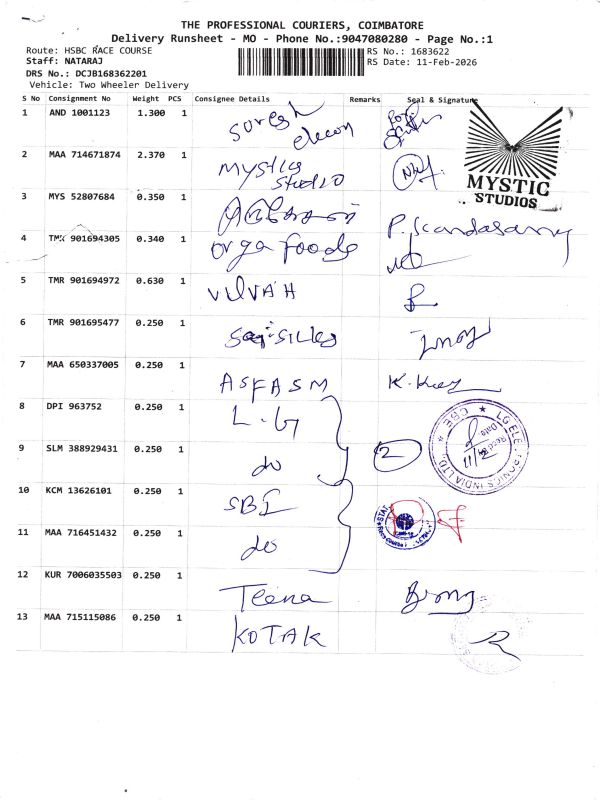 THE PROFESSIONAL COURIERS, COIMBATORE
Delivery Runsheet - MO - Phone No.:9047080280 - Page No.:1
Route: HSBC RACE COURSE
RS No.: 1683622
Staff: NATARAJ
RS Date: 11-Feb-2026
DRS No.: DCJB168362201
Vehicle: Two Wheeler Delivery
S No Consignment No Weight PCS Consignee Details Remarks Seal & Signature
1 AND 1001123 1.300 1 Suresh
2 MAA 714671874 2.370 1 Mystic Studio
MYSTIC
STUDIOS
3 MYS 52807684 0.350 1
4 TMR 901694305 0.340 1 Orga Foods P. Kandasamy
5 TMR 901694972 0.630 1 VILVAH
6 TMR 901695477 0.250 1 Sai Silks
7 MAA 650337005 0.250 1 ASFASM
8 DPI 963752 0.250 1 L.G
9 SLM 388929431 0.250 1 do 2
11/2
10 KCM 13626101 0.250 1 SBI
11 MAA 716451432 0.250 1 do
12 KUR 7006035503 0.250 1 Teena
13 MAA 715115086 0.250 1 KOTAK